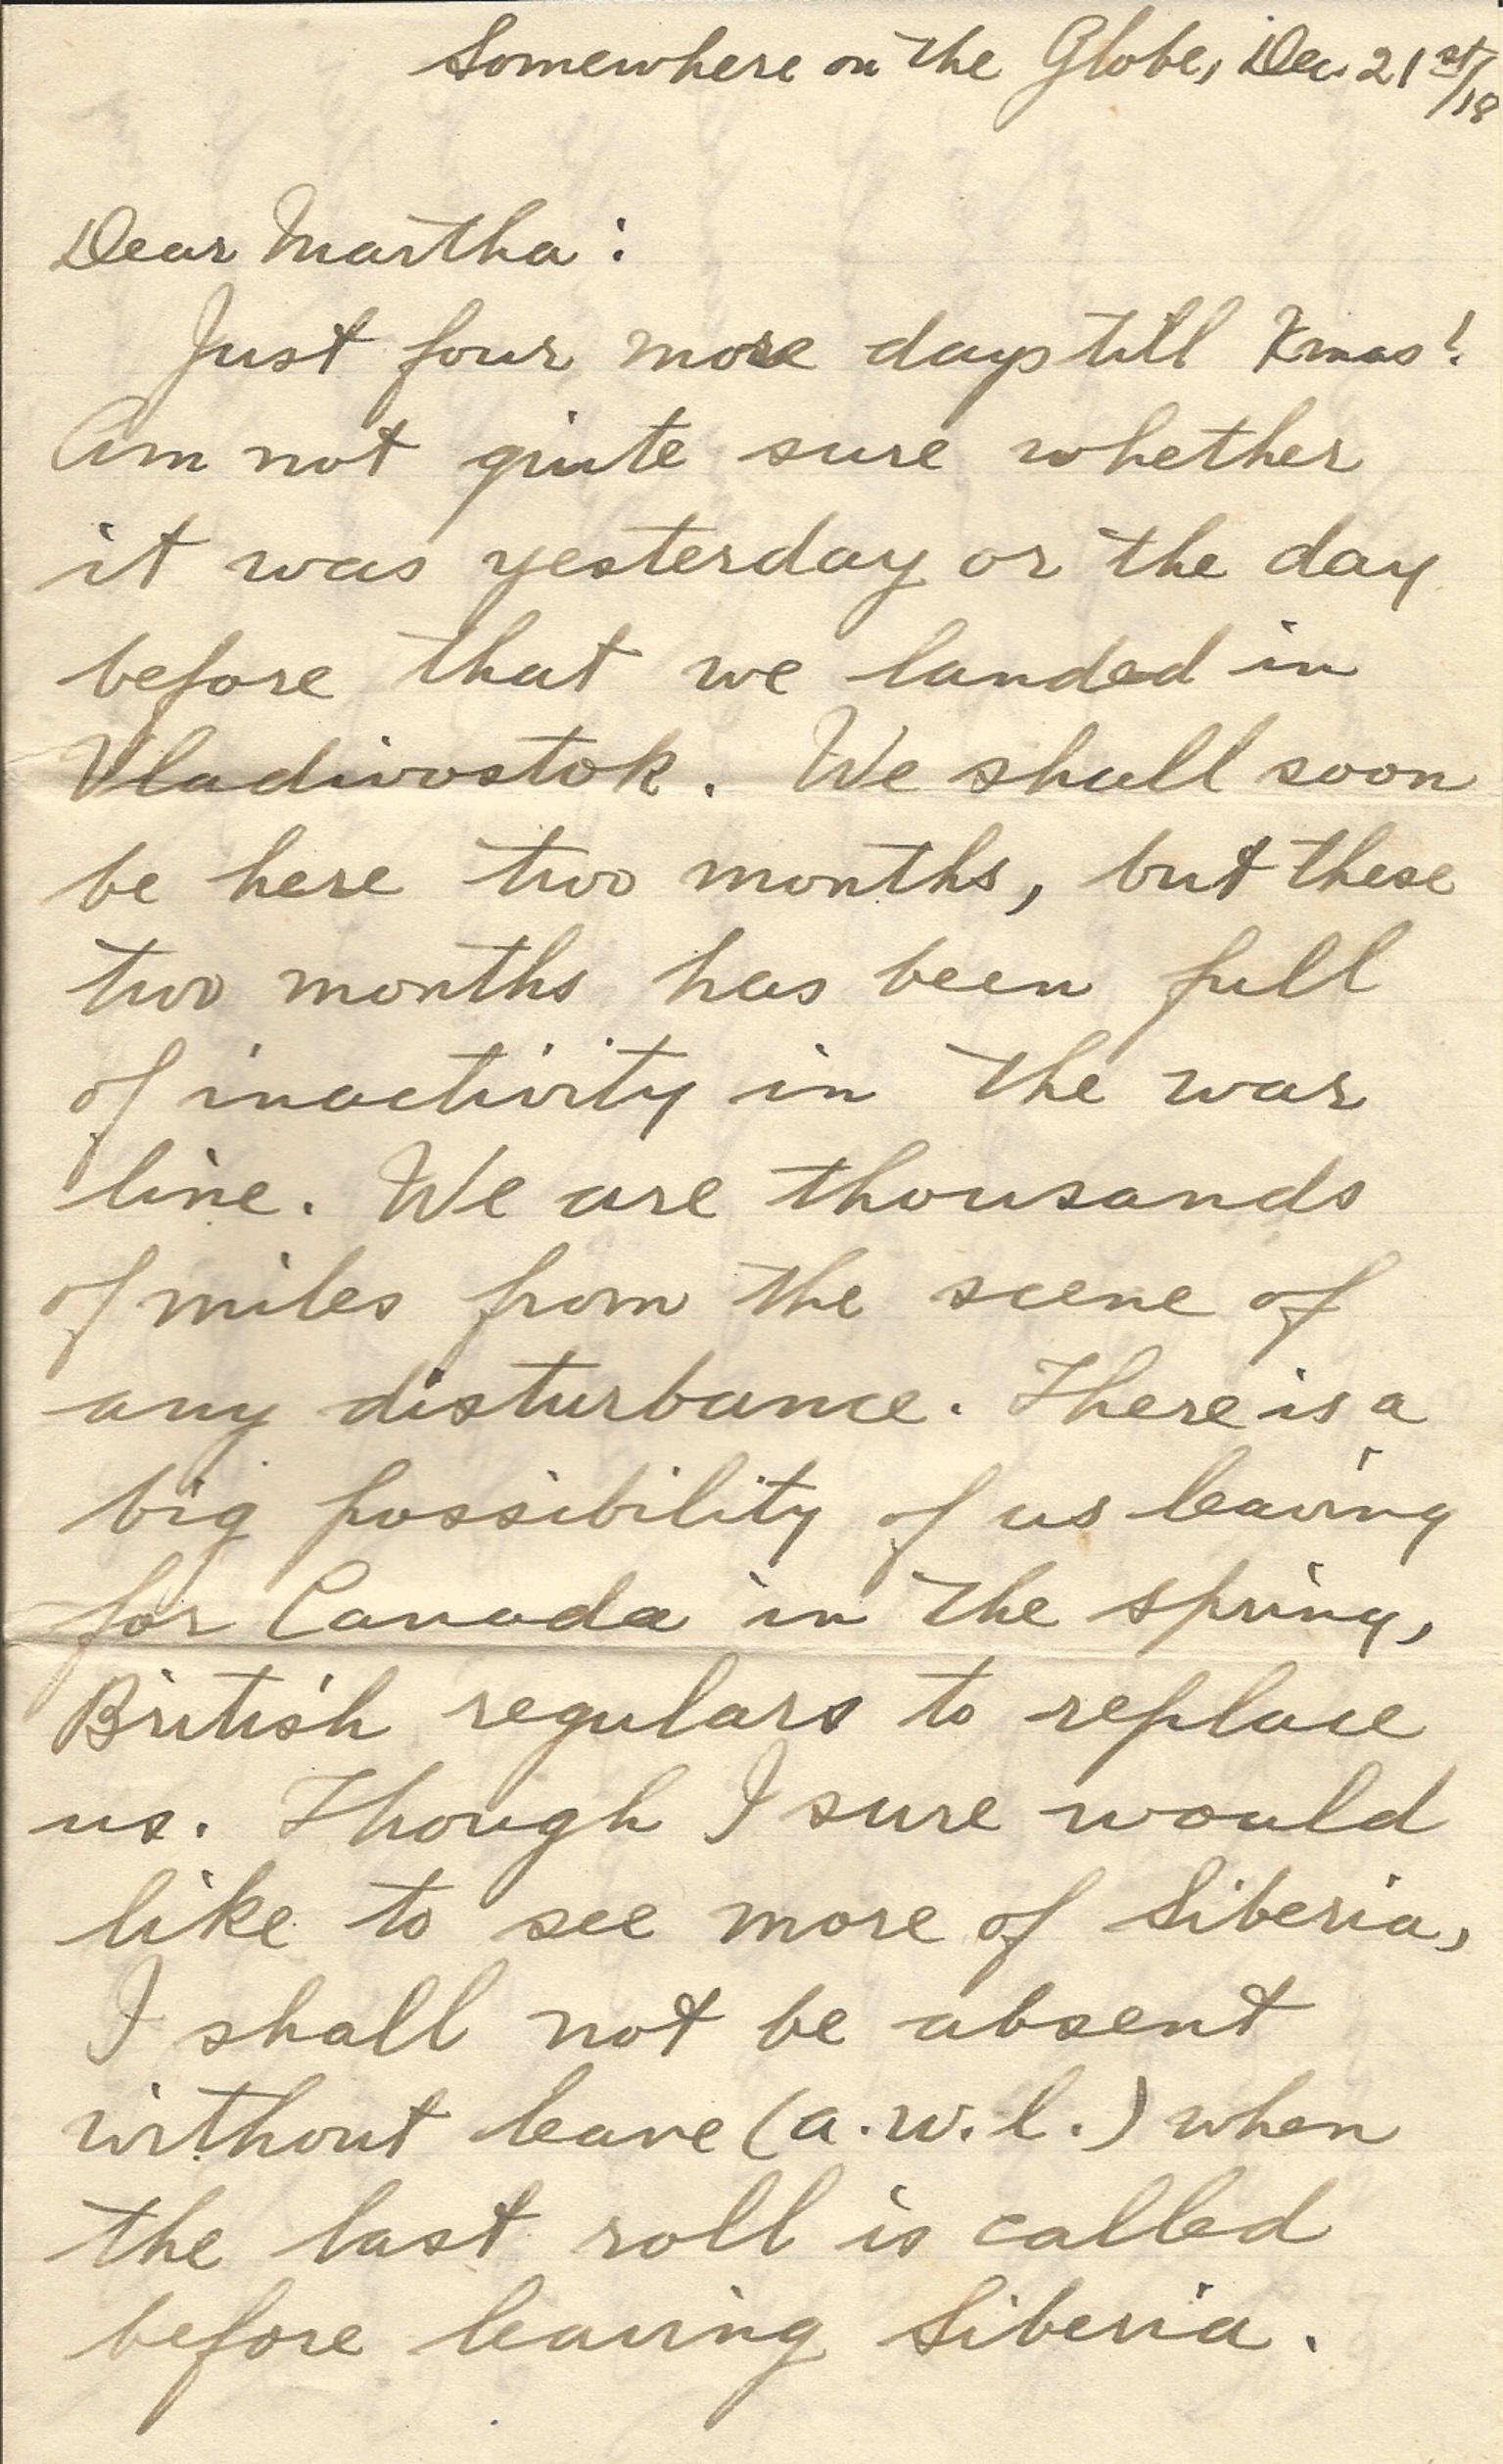 Somewhere on the Globe, Dec. 21st/18
Dear Martha:
Just four more days till Xmas!
Am not quite sure whether
it was yesterday or the day
before that we landed in
Vladivostok. We shall soon
be here two months, but these
two months has been full
of inactivity in the war
line. We are thousands
of miles from the scene of
any disturbance. There is a
big possibility of us leaving
for Canada in the spring,
British regulars to replace
us. Though I sure would
like to see more of Siberia,
I shall not be absent
without leave (a.w.l.) when
the last roll is called
before leaving Siberia.